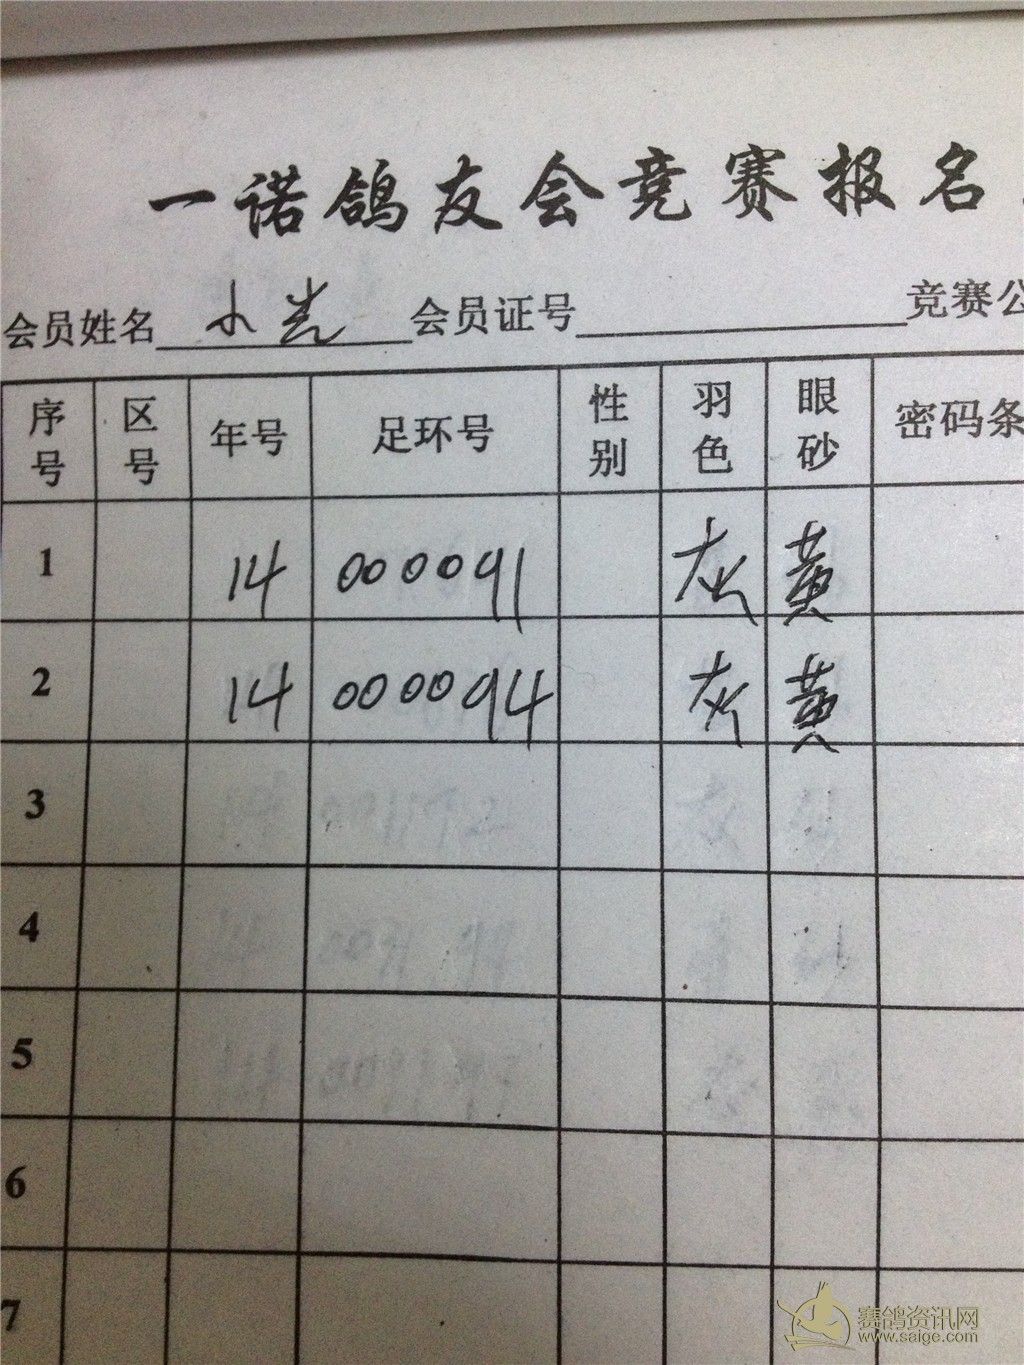 一诺鸽友会竞赛报名
会员姓名 小光 会员证号 竞赛公
序号 区号 年号 足环号 性别 羽色 眼砂 密码条
1 14 000091 灰 黄
2 14 000094 灰 黄
3
4
5
6
7
赛鸽资讯网
www.saige.com